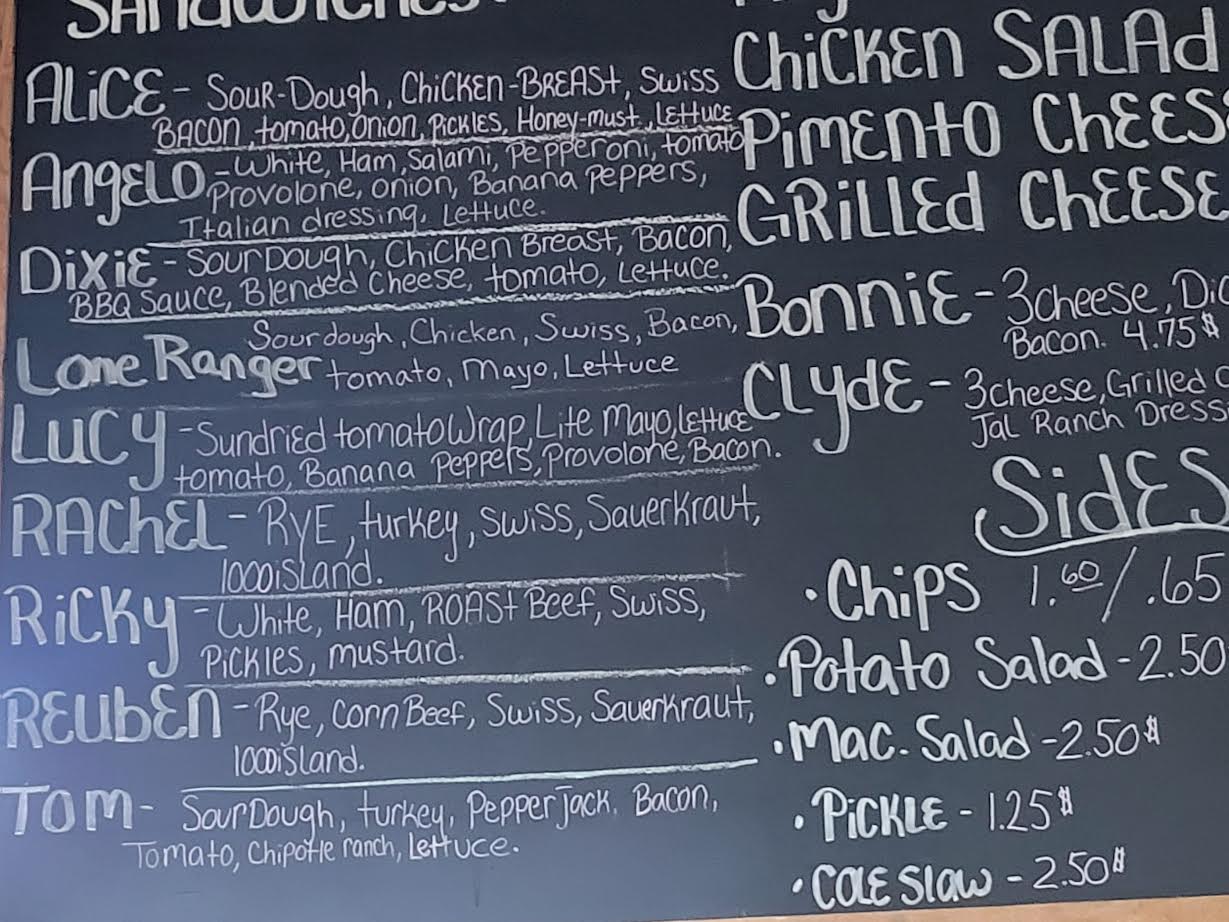 SANDWICHES
ALiCE - SOUR-Dough, CHiCKEN-BREAST, SWiSS
BACON, tomato, Onion, PiCKLES, Honey-must, LEttucE
ANgELO - White, Ham, Salami, Pepperoni, tomato
Provolone, onion, Banana Peppers,
Italian dressing, Lettuce.
DixiE - SourDough, Chicken Breast, Bacon,
BBQ Sauce, Blended Cheese, tomato, Lettuce.
Sourdough, Chicken, Swiss, Bacon,
Lone Ranger tomato, Mayo, Lettuce
LUCY - Sundried tomato Wrap, Lite Mayo, lettuce
tomato, Banana Peppers, Provolone, Bacon.
RAChEL - RYE, turkey, Swiss, Sauerkraut,
1000iSLand.
RiCKy - White, Ham, ROASt BeeF, SwiSS,
PiCKLES, mustard.
REUbEN - Rye, Corn Beef, Swiss, Sauerkraut,
1000iSland.
TOM - SourDough, turkey, Pepper jack, Bacon,
Tomato, Chipotle ranch, Lettuce.
ChiCKEN SALAd
PimENto ChEES
GRiLLEd ChEESE
BonniE - 3 cheese,
Bacon. 4.75$
CLydE - 3 cheese, Grilled
Jal Ranch Dress
SidES
• Chips 1.60/.65
• Potato Salad - 2.50
• Mac. Salad - 2.50$
• PiCKLE - 1.25$
• COLE Slaw - 2.50$